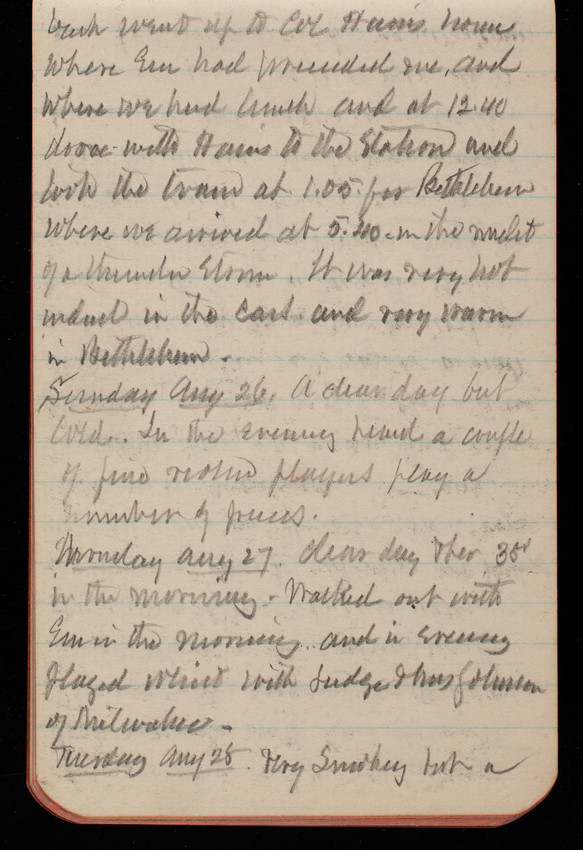 back went up to Col Hains house
where Em had preceeded me, and
where we had lunch and at 12.40
drove with Hains to the Station and
took the train at 1.05 for Bethlehem
where we arrived at 5.40 in the midst
of a thunder Storm. It was very hot
indeed in the cars and very warm
in Bethlehem.
Sunday Aug 26. A clear day but
Cold. In the evening heard a couple
of fine violin players play a
number of pieces.
Monday Aug 27. Clear day Ther 38°
in the morning. Walked out with
Em in the morning and in Evening
played whist with Judge Johnson
of Milwaukee.
Tuesday Aug 28. Very Smokey but a